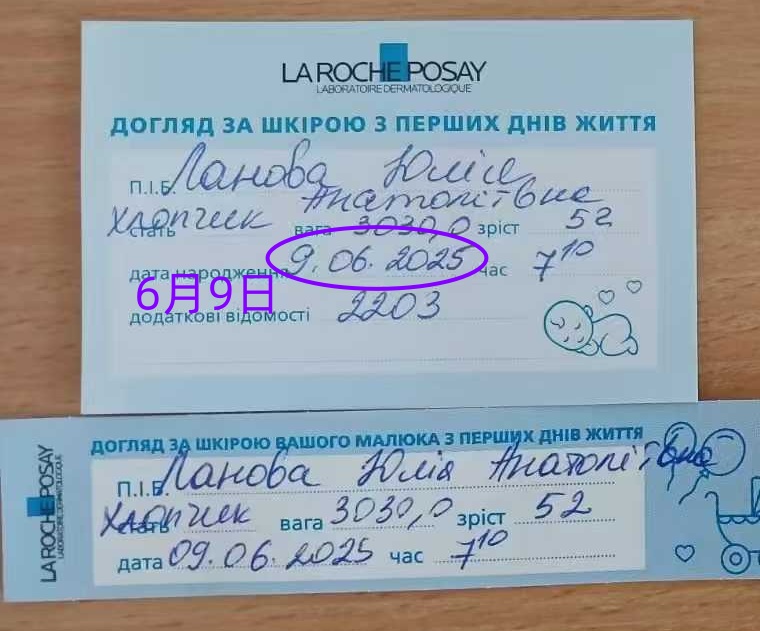 LA ROCHE POSAY
LABORATOIRE DERMATOLOGIQUE
ДОГЛЯД ЗА ШКІРОЮ З ПЕРШИХ ДНІВ ЖИТТЯ
П.І.Б. Ланова Юлія
Анатоліївна
стать Хлопчик вага 3030,0 зріст 52
дата народження 9.06.2025 час 7 10
6月9日
додаткові відомості 2203
LA ROCHE POSAY
LABORATOIRE DERMATOLOGIQUE
ДОГЛЯД ЗА ШКІРОЮ ВАШОГО МАЛЮКА З ПЕРШИХ ДНІВ ЖИТТЯ
П.І.Б. Ланова Юлія Анатоліївна
стать Хлопчик вага 3030,0 зріст 52
дата 09.06.2025 час 7 10